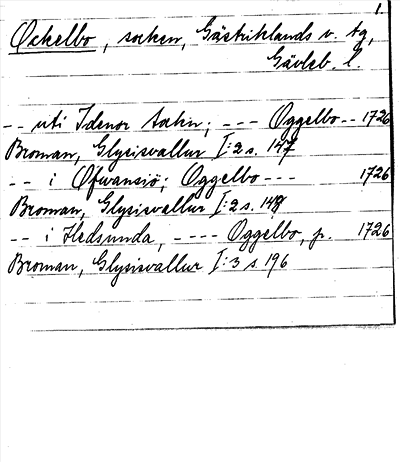 1.
Ockelbo, socken, Gästriklands v. tg,
Gävleb. l.
-- uti Idenor sokn; --- Oggelbo -- 1726
Broman, Glysisvallur I:2 s. 147
-- i Öfwansiö; Oggelbo --- 1726
Broman, Glysisvallur I:2 s. 148
-- i Hedsunda, ---- Oggelbo, p. 1726
Broman, Glysisvallur I:3 s. 196